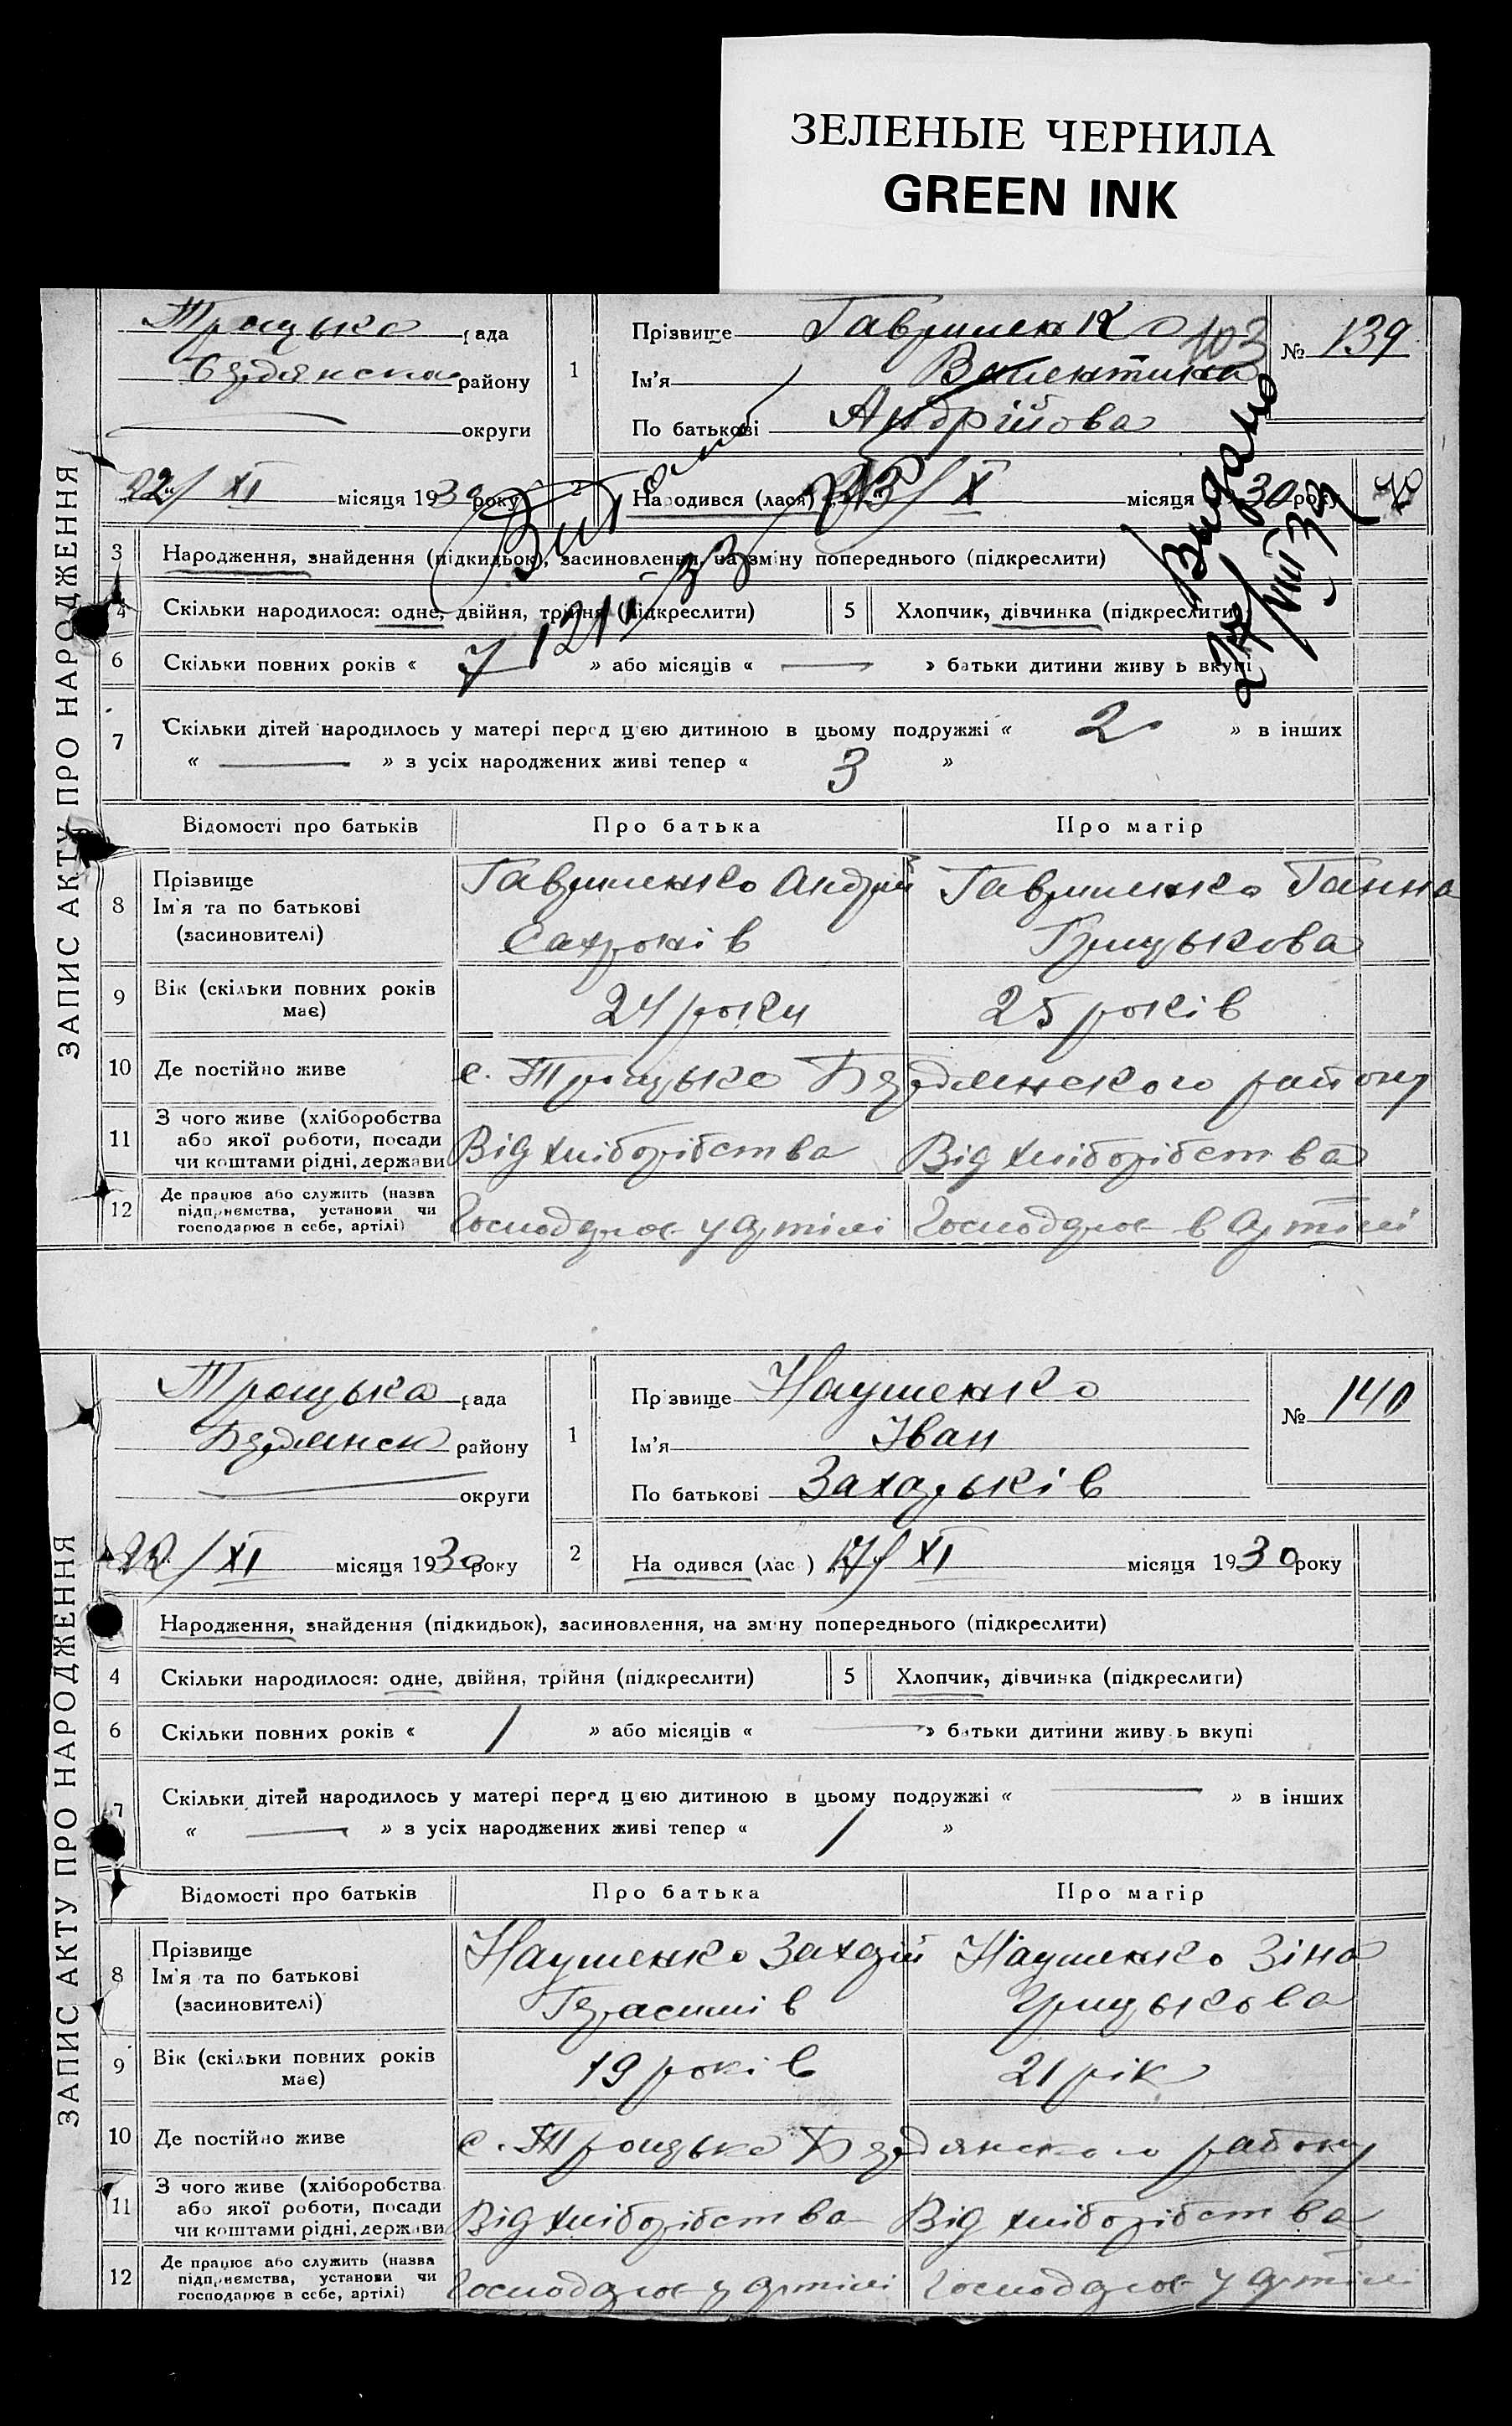 ЗЕЛЕНЫЕ ЧЕРНИЛА
GREEN INK
ЗАПИС АКТУ ПРО НАРОДЖЕННЯ
Троцька рада
району
округи
1
Прізвище Гавриленко
Ім'я Валентина
По батькові Андрійова
103
№ 139
22/XI місяця 1930 року
2
Народився (лася) /X місяця 1930 року
Видано
3 Народження, знайдення (підкидьок), засиновлення, на зміну попереднього (підкреслити)
4 Скільки народилося: одне, двійня, трійня (підкреслити) 5 Хлопчик, дівчинка (підкреслити)
6 Скільки повних років « 7 » або місяців « — » батьки дитини живуть вкупі
7 Скільки дітей народилось у матері перед цією дитиною в цьому подружжі « 2 » в інших
« — » з усіх народжених живі тепер « 3 »
Відомості про батьків Про батька Про матір
8 Прізвище Ім'я та по батькові (засиновителі)
Гавриленко Андрій Гавриленко Ганна
Грицькова
9 Вік (скільки повних років має) 24 роки 25 років
10 Де постійно живе с. Троцьке Бердянского району
11 З чого живе (хліборобства або якої роботи, посади чи коштами рідні, держави Від хліборібства Від хліборібства
12 Де працює або служить (назва підприємства, установи чи господарює в себе, артілі) Господарює у артілі Господарює в артілі
ЗАПИС АКТУ ПРО НАРОДЖЕННЯ
Троцька рада
Бердянск району
округи
1
Прізвище Наушенко
Ім'я Іван
По батькові Захарьків
№ 140
22/XI місяця 1930 року
2
Народився (лася) 17/XI місяця 1930 року
Народження, знайдення (підкидьок), засиновлення, на зміну попереднього (підкреслити)
4 Скільки народилося: одне, двійня, трійня (підкреслити) 5 Хлопчик, дівчинка (підкреслити)
6 Скільки повних років « 1 » або місяців « — » батьки дитини живуть вкупі
7 Скільки дітей народилось у матері перед цією дитиною в цьому подружжі « — » в інших
« — » з усіх народжених живі тепер « 1 »
Відомості про батьків Про батька Про матір
8 Прізвище Ім'я та по батькові (засиновителі)
Наушенко Захарій Наушенко Зіна
Герасимів Грицькова
9 Вік (скільки повних років має) 19 років 21 рік
10 Де постійно живе с. Троцьке Бердянского району
11 З чого живе (хліборобства або якої роботи, посади чи коштами рідні, держави Від хліборібства Від хліборібства
12 Де працює або служить (назва підприємства, установи чи господарює в себе, артілі) Господарює у артілі Господарює у артілі